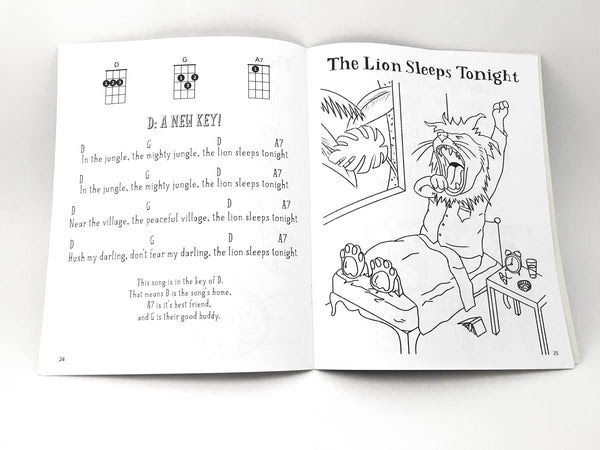 D G A7
D: A NEW KEY!
D G D A7
In the jungle, the mighty jungle, the lion sleeps tonight
D G D A7
In the jungle, the mighty jungle, the lion sleeps tonight
D G D A7
Near the village, the peaceful village, the lion sleeps tonight
D G D A7
Hush my darling, don't fear my darling, the lion sleeps tonight
This song is in the key of D.
That means D is the song's home,
A7 is it's best friend,
and G is their good buddy.
24
The Lion Sleeps Tonight
25